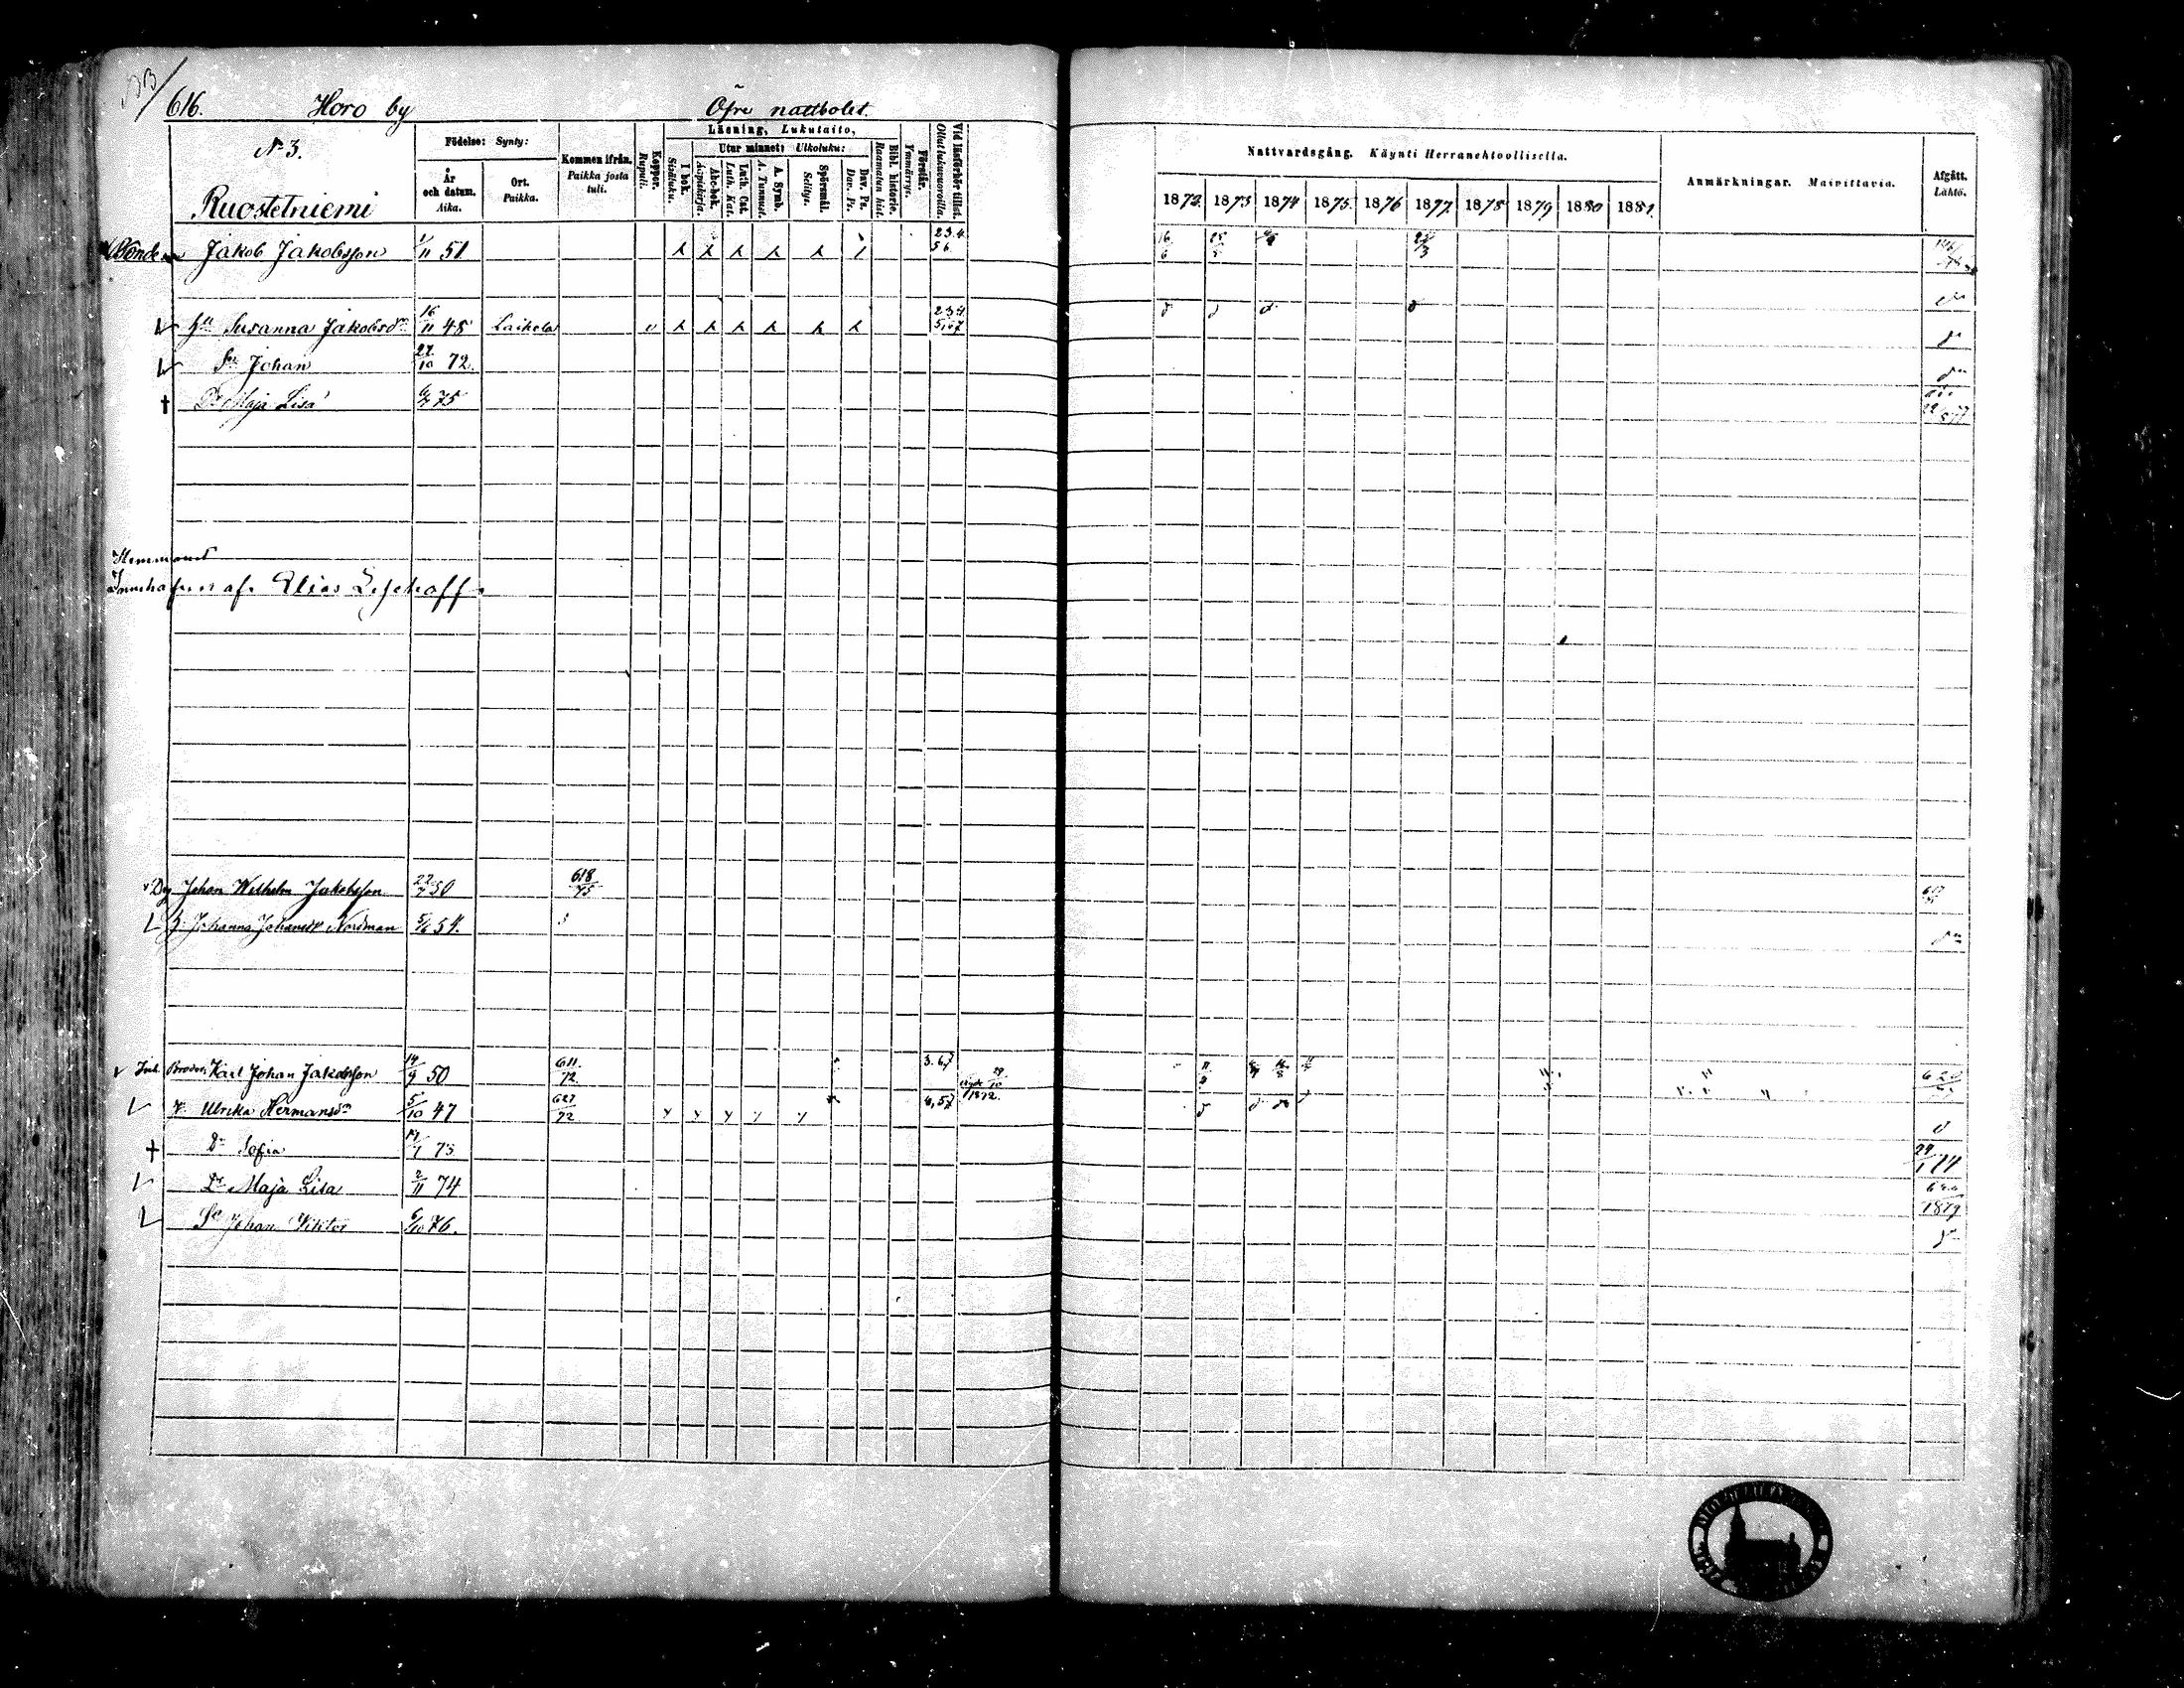 616. Horo by Öfre nattbolet.
No 3.
Ruostetniemi
Födelse: Synty:
År och datum. Aika.
Ort. Paikka.
Kommen ifrån. Paikka josta tuli.
Koppor. Rupuli.
Läsning, Lukutaito,
I bok. Sisäluku.
Utur minnet: Ulkoluku:
Abc-bok. Aapiskirja.
Luth. Cat. Luth. Kat.
A. Symb. A. Tunnust.
Spörsmål. Selitys.
Dav. Ps. Dav. Ps.
Bibl. historie. Raamatun hist.
Förstår. Ymmärrys.
Vid läsförhör tillst. Ollut lukuvuoroilla.
Nattvardsgång. Käynti Herranehtoollisella.
1872. 1873 1874 1875. 1876 1877. 1878 1879 1880 1881.
Anmärkningar. Muistittavia.
Afgått. Lähtö.
Bonde Jakob Jakobsson 1/11 51 2.3.4. 5 6. 16/6
Hu Susanna Jakobsdr 16/11 48 Laikela 2 3 4 5, 6 7
Sn Johan 27/10 72.
Dr Maja Lisa 75
Hemmanet
Innehafves af. Elias Leschoff.
Dg Johan Wilhelm Jakobsson 22/7 50 618/75
H. Johanna Johansdr Nordman 5/6 54.
Inh. Brodren Karl Johan Jakobsson 14/9 50 611./72. 3. 6. 7
H. Ulrika Hermansdr 5/10 47 627/72 4, 5 7 1872.
Dr Sofia 73 24/1 74
Dr Maja Lisa 2/11 74 1879
Sn Johan Viktor 6/10 76.